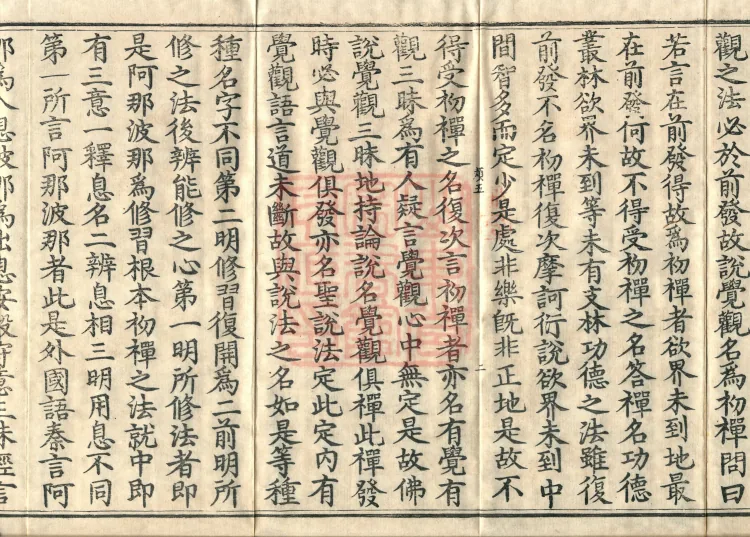 觀之法必於前發故說覺觀名爲初禪問曰
若言在前發得故爲初禪者欲界未到地最
在前發何故不得受初禪之名答禪名功德
叢林欲界未到等未有支林功德之法雖復
前發不名初禪復次摩訶衍說欲界未到中
間智多而定少是處非樂旣非正地是故不
得受初禪之名復次言初禪者亦名有覺有
觀三昧爲有人疑言覺觀心中無定是故佛
說覺觀三昧地持論說名覺觀俱禪此禪發
時必與覺觀俱發亦名聖說法定此定內有
覺觀語言道未斷故與說法之名如是等種
種名字不同第二明修習復開爲二前明所
修之法後辨能修之心第一明所修法者即
是阿那波那爲修習根本初禪之法就中即
有三意一釋息名二辨息相三明用息不同
第一所言阿那波那者此是外國語秦言阿
那爲入息波那爲出息安般守意三昧經言